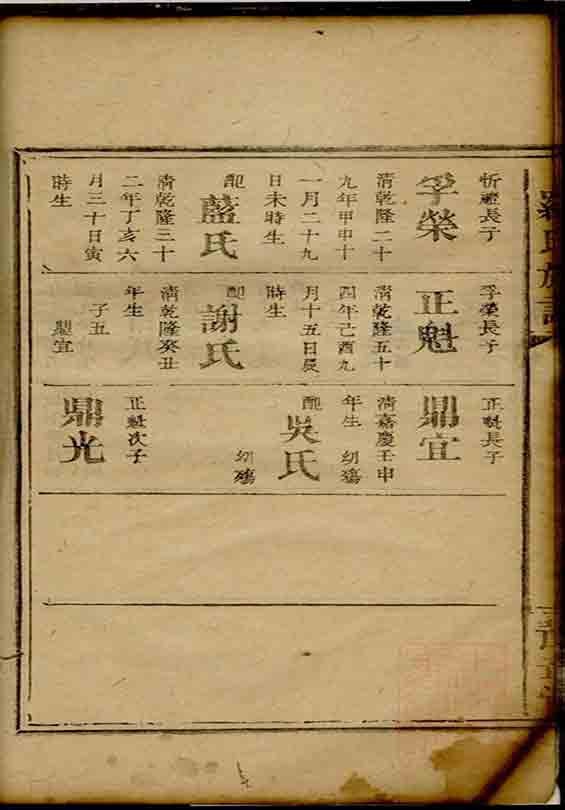 忻禮長子
孚榮
清乾隆二十
九年甲申十
一月二十九
日未時生
配
藍氏
清乾隆三十
二年丁亥六
月三十日寅
時生
孚榮長子
正魁
清乾隆五十
四年己酉九
月十五日辰
時生
配
謝氏
清乾隆癸丑
年生
子五
鼎宜
正魁長子
鼎宜
清嘉慶壬申
年生 幼殤
配
吳氏
幼殤
正魁次子
鼎光
氏族譜